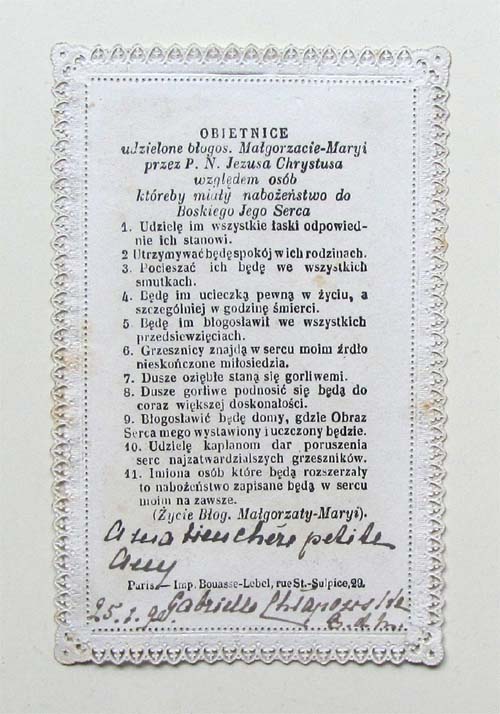 OBIETNICE
udzielone błogos. Małgorzacie-Maryi
przez P. N. Jezusa Chrystusa
względem osób
któreby miały nabożeństwo do
Boskiego Jego Serca
1. Udzielę im wszystkie łaski odpowied-
nie ich stanowi.
2 Utrzymywać będę spokój w ich rodzinach.
3. Pocieszać ich będę we wszystkich
smutkach.
4. Będę im ucieczką pewną w życiu, a
szczególniej w godzinę śmierci.
5 Będę im błogosławił we wszystkich
przedsiewzięciach.
6. Grzesznicy znajdą w sercu moim źrdło
nieskończone miłosiedzia.
7. Dusze oziębłe staną się gorliwemi.
8. Dusze gorliwe podnosić się będą do
coraz większej doskonałości.
9. Błogosławić będę domy, gdzie Obraz
Serca mego wystawiony i uczczony będzie.
10. Udzielę kapłanom dar poruszenia
serc najzatwardzialszych grzeszników.
11. Imiona osób które będą rozszerzały
to nabożeństwo zapisane będą w sercu
moim na zawsze.
(Życie Błog. Małgorzaty-Maryi).
A ma bien chère petite
Paris — Imp. Bouasse-Lebel, rue St.-Sulpice, 29.
Gabrielle